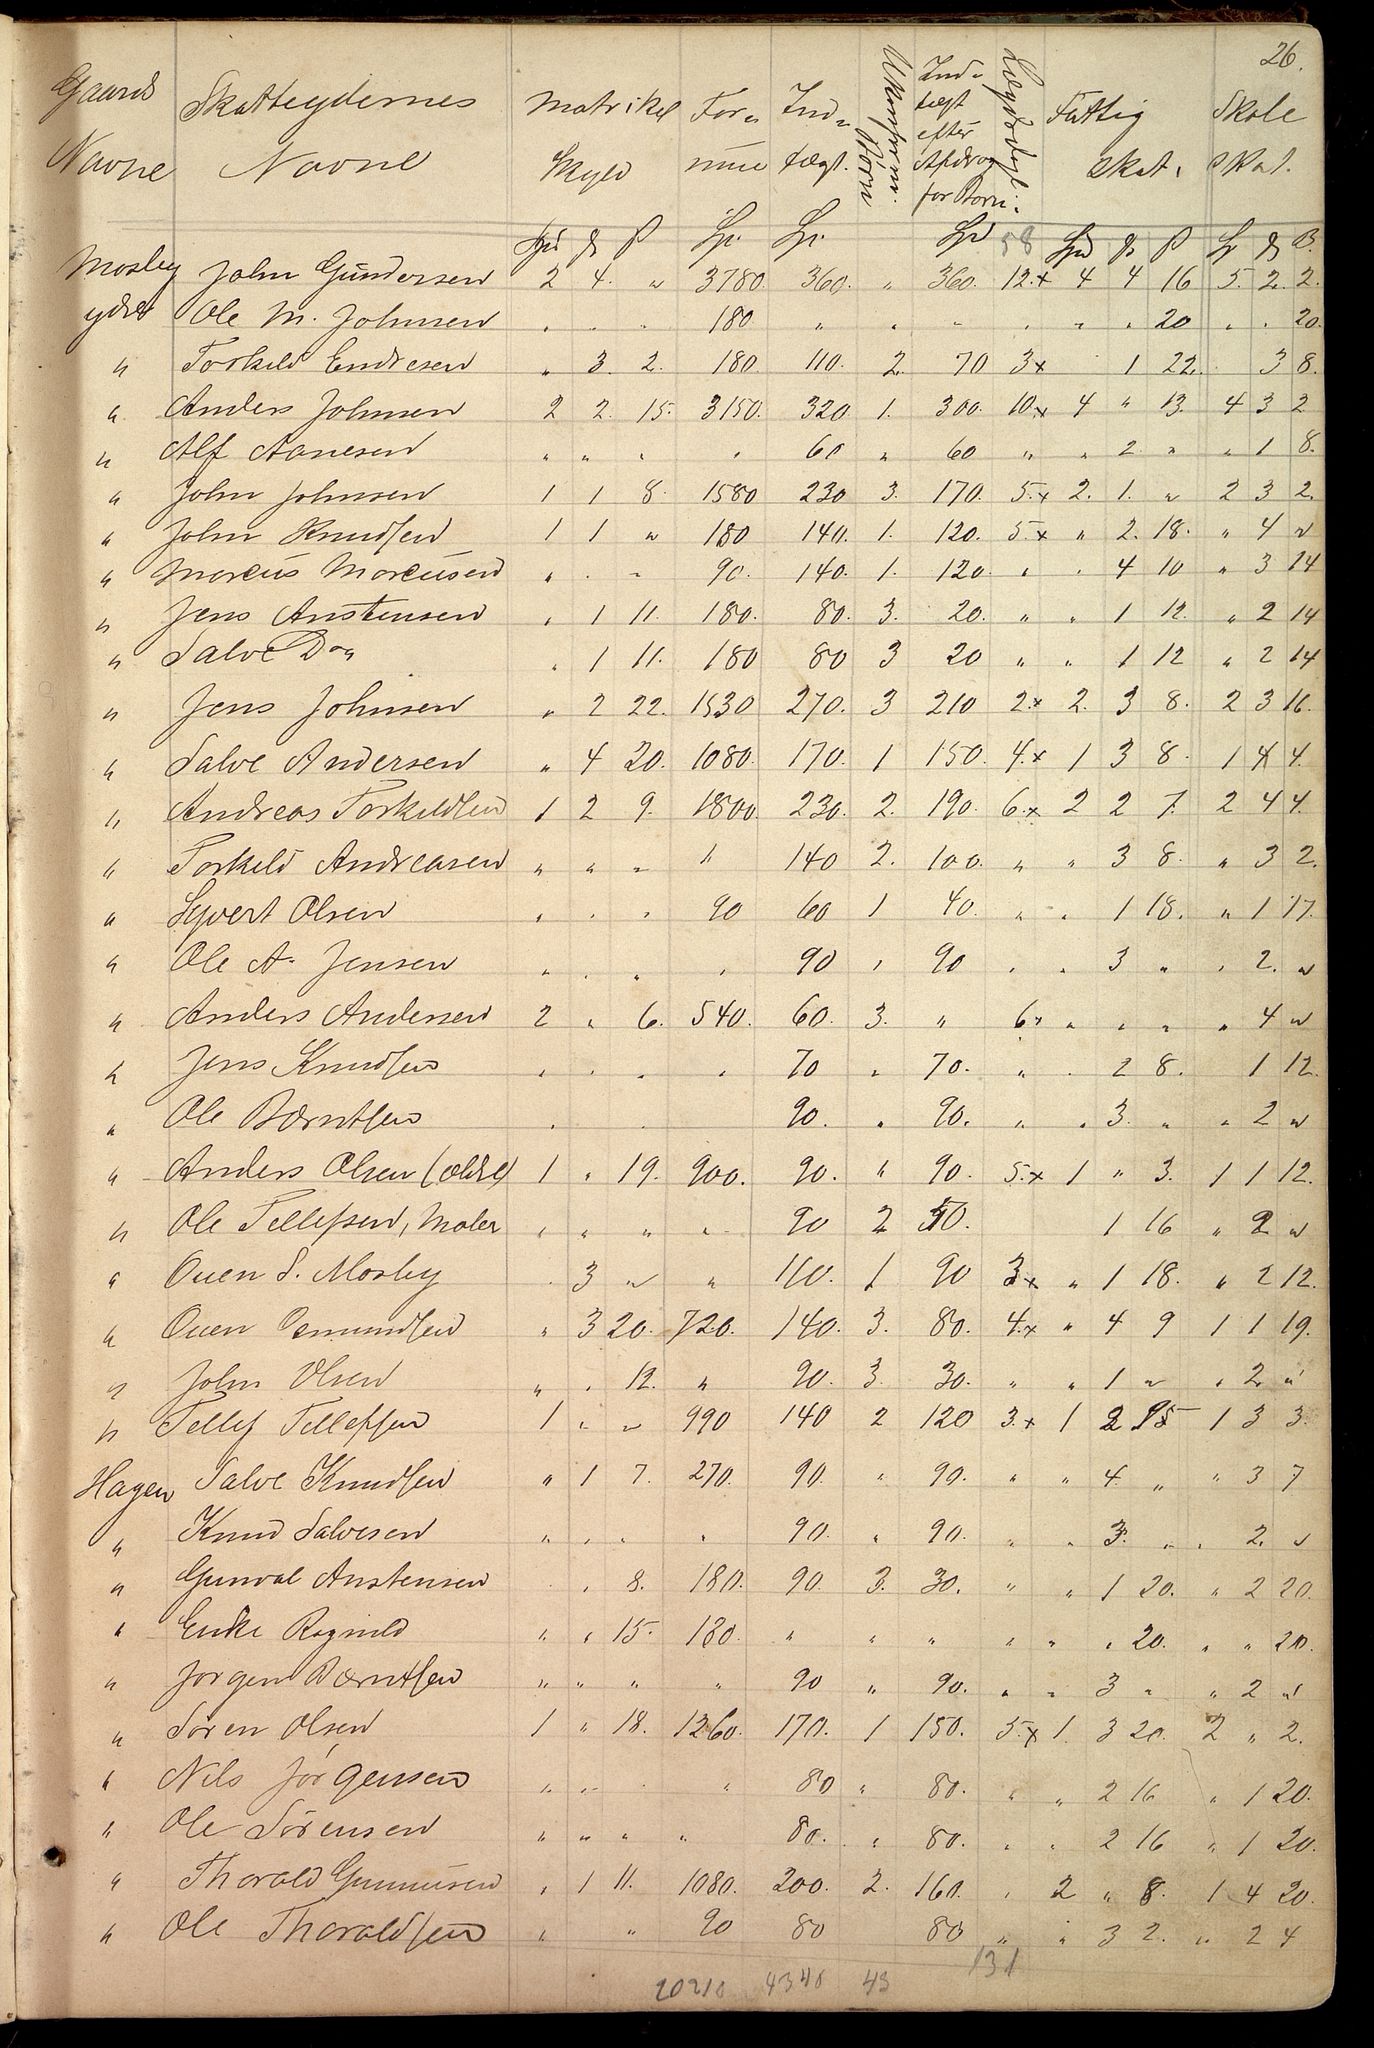 26.
Gaards Navne | Skatteydernes Navne | Matrikel Skyld | Formue | Indtægt. | Ukonfirm. Børn | Indtægt efter Afdrag for Børn | Lægdsdage | Fattig skat. | Skole skat.
Spd # ß | Sp. | Sp. | | Spd | 58 | Spd # ß | Sp # ß
Mosby John Gundersen 2 4. " 3780. 360. " 360. 12.x 4 4 16 5. 2. 2.
ydre Ole M. Johnsen " " " 180 " " " " " " 20 " " 20.
" Torkild Endresen " 3. 2. 180. 110. 2. 70 3x 1 22. 3 8.
" Anders Johnsen 2 2. 15. 3150. 320 1. 300. 10.x 4 " 13. 4 3 2
" Alf Aanesen " " " " 60 " 60 " " 2. " " 1 8.
" John Johnsen 1 1 8. 1580 230 3. 170. 5.x 2. 1. " 2 3 2.
" John Knudsen 1 1 " 180 140. 1. 120. 5.x " 2. 18. " 4 "
" Marcus Marcusen " " " 90. 140. 1. 120. " " 4 10 " 3 14
" Jens Anstensen " 1 11. 180. 80. 3. 20. " " 1 12. " 2 14
" Salve Do " 1 11. 180 80 3 20 " " 1 12 " 2 14
" Jens Johnsen " 2 22. 1530 270. 3 210 2.x 2. 3 8. 2 3 16.
" Salve Andersen " 4 20. 1080. 170. 1 150. 4.x 1 3 8. 1 4 4.
" Andreas Torkildsen 1 2 9. 1800. 230. 2. 190. 6.x 2 2 7. 2 4 4.
" Torkild Andreasen " " " " 140 2. 100. " " 3 8. " 3 2.
" Syvert Olsen " " " 90 60 1 40. " " 1 18. " 1 17.
" Ole A. Jensen " " " " 90 " 90 " " 3 " " 2. "
" Anders Andersen 2 " 6. 540. 60. 3. " 6x " " " " 4 "
" Jens Knudsen " " " " 70 " 70. " " 2 8. 1 12.
" Ole Berntsen " " 90. " 90. " " 3. " " 2 "
" Anders Olsen (ældre) 1 " 19. 900. 90. " 90. 5.x 1 " 3. 1 1 12.
" Ole Tellefsen, Maler " " " " 90 2 50. 1 16 " 2 "
" Ouen S. Mosby " 3 " " 110. 1 90 3.x " 1 18. " 2 12.
" Ouen Osmundsen " 3 20. 720. 140. 3. 80. 4.x " 4 9 1 1 19.
" John Olsen " " 12. " 90. 3. 30. " " 1 " " 2. "
" Tellef Tellefsen 1 " " 990 140 2 120 3.x 1 2 15 1 3 3.
Hagen Salve Knudsen " 1 7. 270. 90. " 90. " " 4. " " 3 7
" Knud Salvesen " " " " 90. " 90. " " 3. " " 2. "
" Gunval Anstensen " " 8. 180. 90. 3. 30. " " 1 20. " 2 20.
" Enke Ragnild " " 15. 180. " " " " " " 20. " " 20.
" Jørgen Berntsen " " " " 90 " 90. " " 3 " " 2 "
" Søren Olsen 1 " 18. 1260. 170. 1 150. 5.x 1. 3 20. 2 " 2.
" Nils Jørgensen " " " " 80 " 80. " " 2 16 " 1 20.
" Ole Sørensen " " " " 80. " 80. " " 2 16 " 1 20.
" Thorald Gunnusen " 1 11. 1080. 200. 2. 160. " 2 " 8. 1 4 20.
" Ole Thoraldsen " " 90 80 80 " " 3 2. " 2 4
20210 4340 43 131